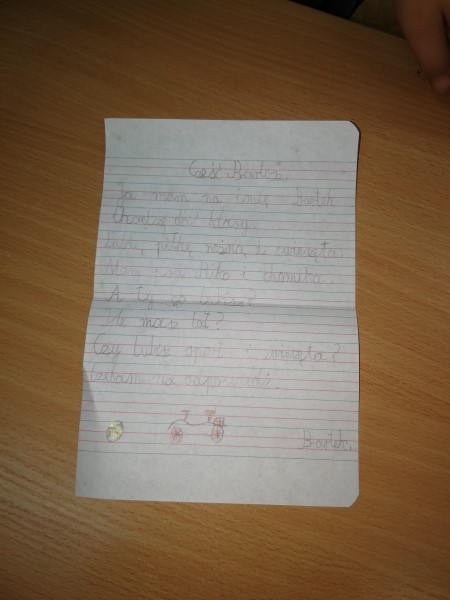 Cześć Bartosz.
Ja mam na imię Bartek
Chodzę do klasy
Lubię piłkę nożną i zwierzęta.
Mam psa i chomika.
A Ty co lubisz?
Ile masz lat?
Czy lubisz sport i zwierzęta?
Czekam na odpowiedź.
Bartek.